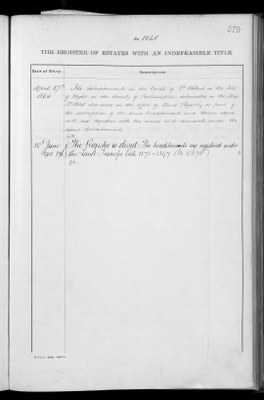 No 1048
373
THE REGISTER OF ESTATES WITH AN INDEFEASIBLE TITLE.
Date of Entry.
Description.
April 27th The hereditaments in the Parish of St Helens in the Isle
1866 of Wight in the County of Southampton delineated on the Map
No 1048 deposited in the Office of Land Registry as part of
the description of the said hereditaments and thereon edged
with red together with the mines and minerals under the
same hereditaments
10th June The Register is closed. The hereditaments are registered under
the Land Transfer Acts 1875 & 1897